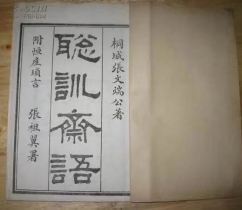 桐城張文端公著
聡訓齋語
附恒産瑣言
張祖翼署